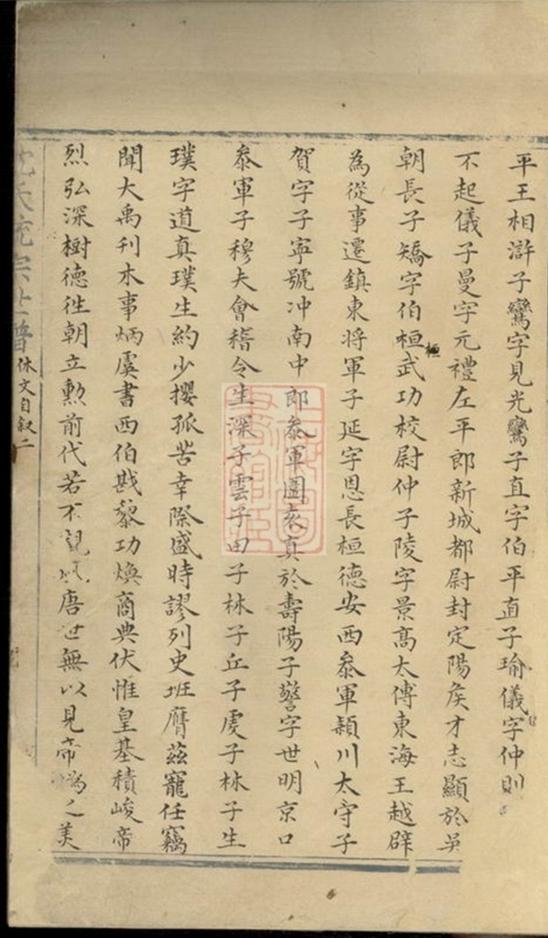 平王相滸子鸞字見光鸞子直字伯平直子瑜儀字仲則
不起儀子曼字元禮左平郎新城都尉封定陽矦才志顯於吳
朝長子矯字伯桓武功校尉仲子陵字景高太傅東海王越辟
桓
為從事遷鎮東将軍子延字思長桓德安西叅軍頴川太守子
賀字子寧號冲南中郎叅軍圍袁真於壽陽子警字世明京口
叅軍子穆夫會稽令生深子雲子田子林子丘子虔子林子生
璞字道真璞生約少攖孤苦幸際盛時謬列史班膺茲寵任竊
聞大禹刊木事炳虞書西伯戡黎功煥商典伏惟皇基積峻帝
烈弘深樹德徃朝立勲前代若不觀唐世無以見帝媯之美
沈氏統宗世譜
休文自叙二